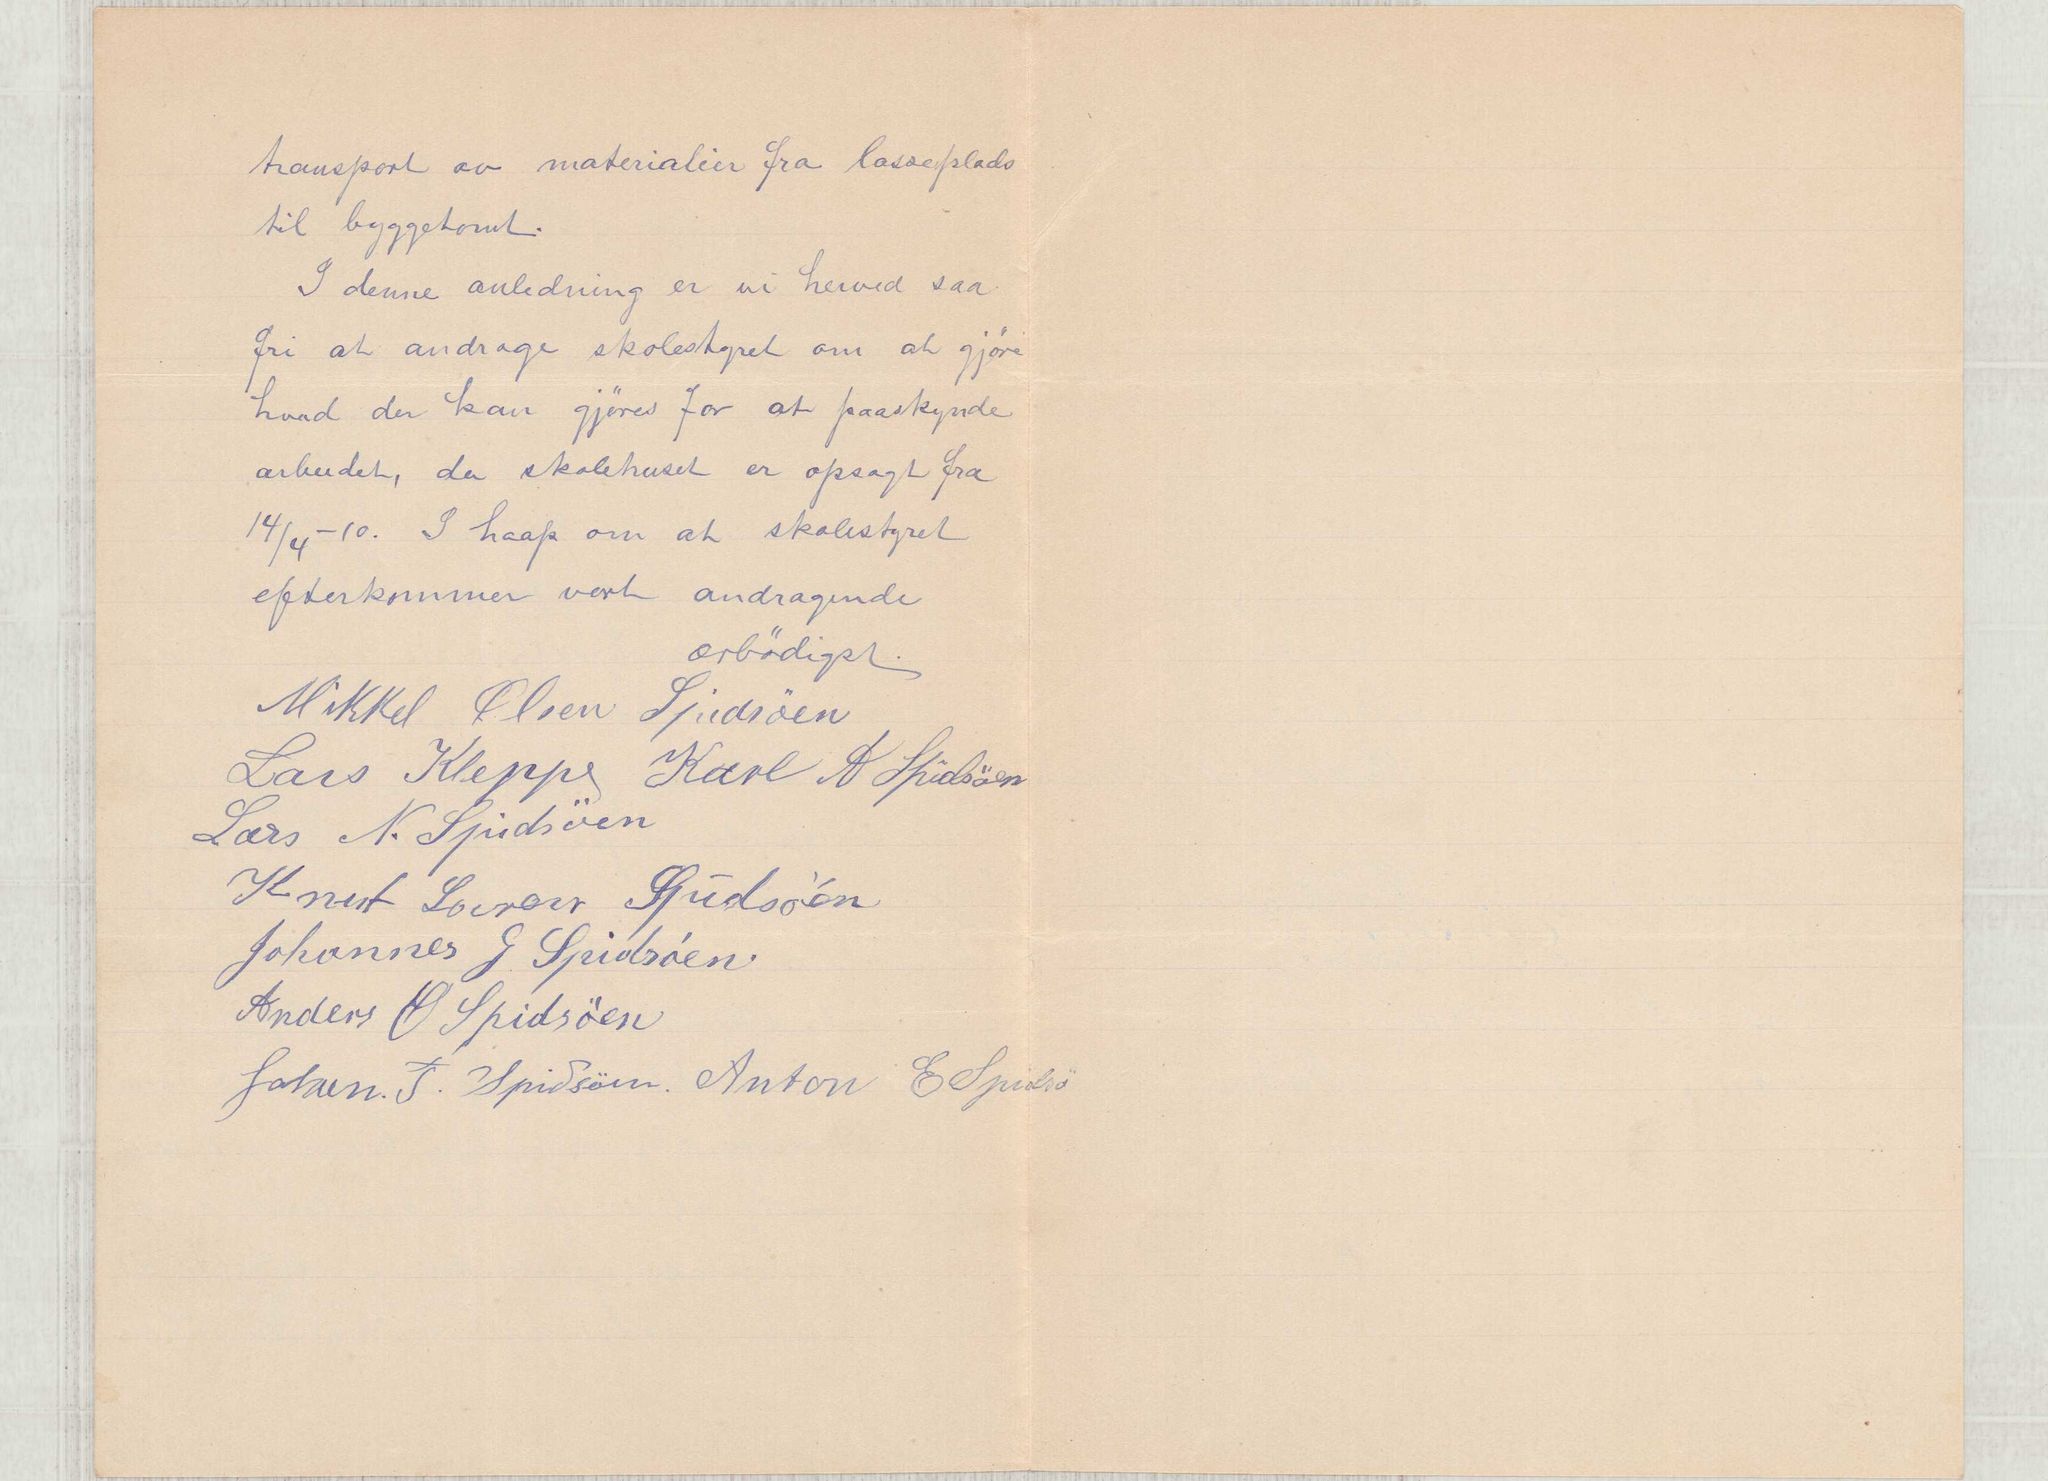 transport av materialier fra losseplads
til byggetomt.
I denne anledning er vi herved saa
fri at androge skolestyret om at gjöre
hvad der kan gjöres for at paaskynde
arbeidet, da skolehuset er opsagt fra
14/4-10. I haap om at skolestyret
efterkommer vort andragende
ærbödigst.
Mikkel Olsen Spidsöen
Lars Kleppe Karl A Spidsöen
Lars N. Spidsöen
Knut Spidsöen
Johannes J Spidsöen.
Anders O Spidsöen
T. Spidsöen. Anton E Spidsö